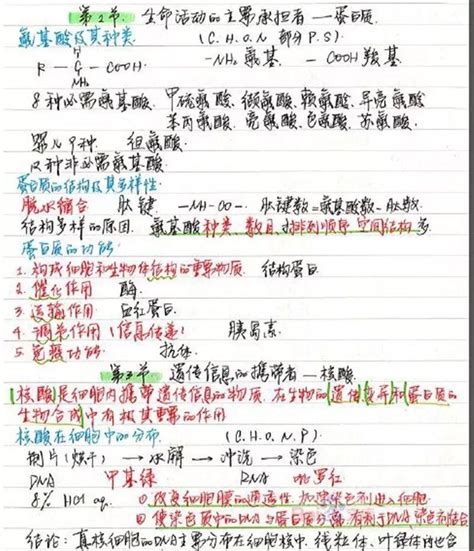 第2节 生命活动的主要承担者——蛋白质
氨基酸及其种类 (C.H.O.N 部分P.S)
R—C—COOH -NH₂ 氨基 -COOH 羧基
H
NH₂
8种必需氨基酸 甲硫氨酸、缬氨酸、赖氨酸、异亮氨酸
苯丙氨酸、亮氨酸、色氨酸、苏氨酸
婴儿9种 组氨酸
12种非必需氨基酸
蛋白质的结构及其多样性
脱水缩合 肽键 -NH-CO- 肽键数=氨基酸数-肽链数
结构多样的原因 氨基酸种类、数目、排列顺序 空间结构多
蛋白质的功能
1. 构成细胞和生物体结构的重要物质 结构蛋白
2. 催化作用 酶
3. 运输作用 血红蛋白
4. 调节作用(信息传递) 胰岛素
5. 免疫功能 抗体
第3节 遗传信息的携带者——核酸
核酸是细胞内携带遗传信息的物质,在生物的遗传变异和蛋白质的
生物合成中有极其重要的作用
核酸在细胞中的分布 (C.H.O.N.P)
制片(烘干)→水解→冲洗→染色
DNA 甲基绿 RNA 吡罗红
8% HCl aq. ①改变细胞膜的通透性 加速染色剂进入细胞
②使染色质中的DNA与蛋白质分离 有利于DNA与染色剂结合
结论:真核细胞的DNA主要分布在细胞核中,线粒体、叶绿体内也含